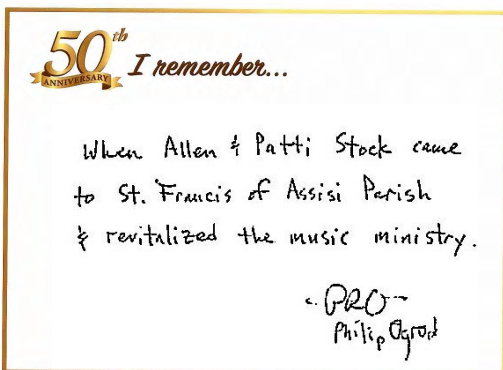 50th
ANNIVERSARY
I remember...
When Allen & Patti Stock came
to St. Francis of Assisi Parish
& revitalized the music ministry.
PRO
Philip Ogrod